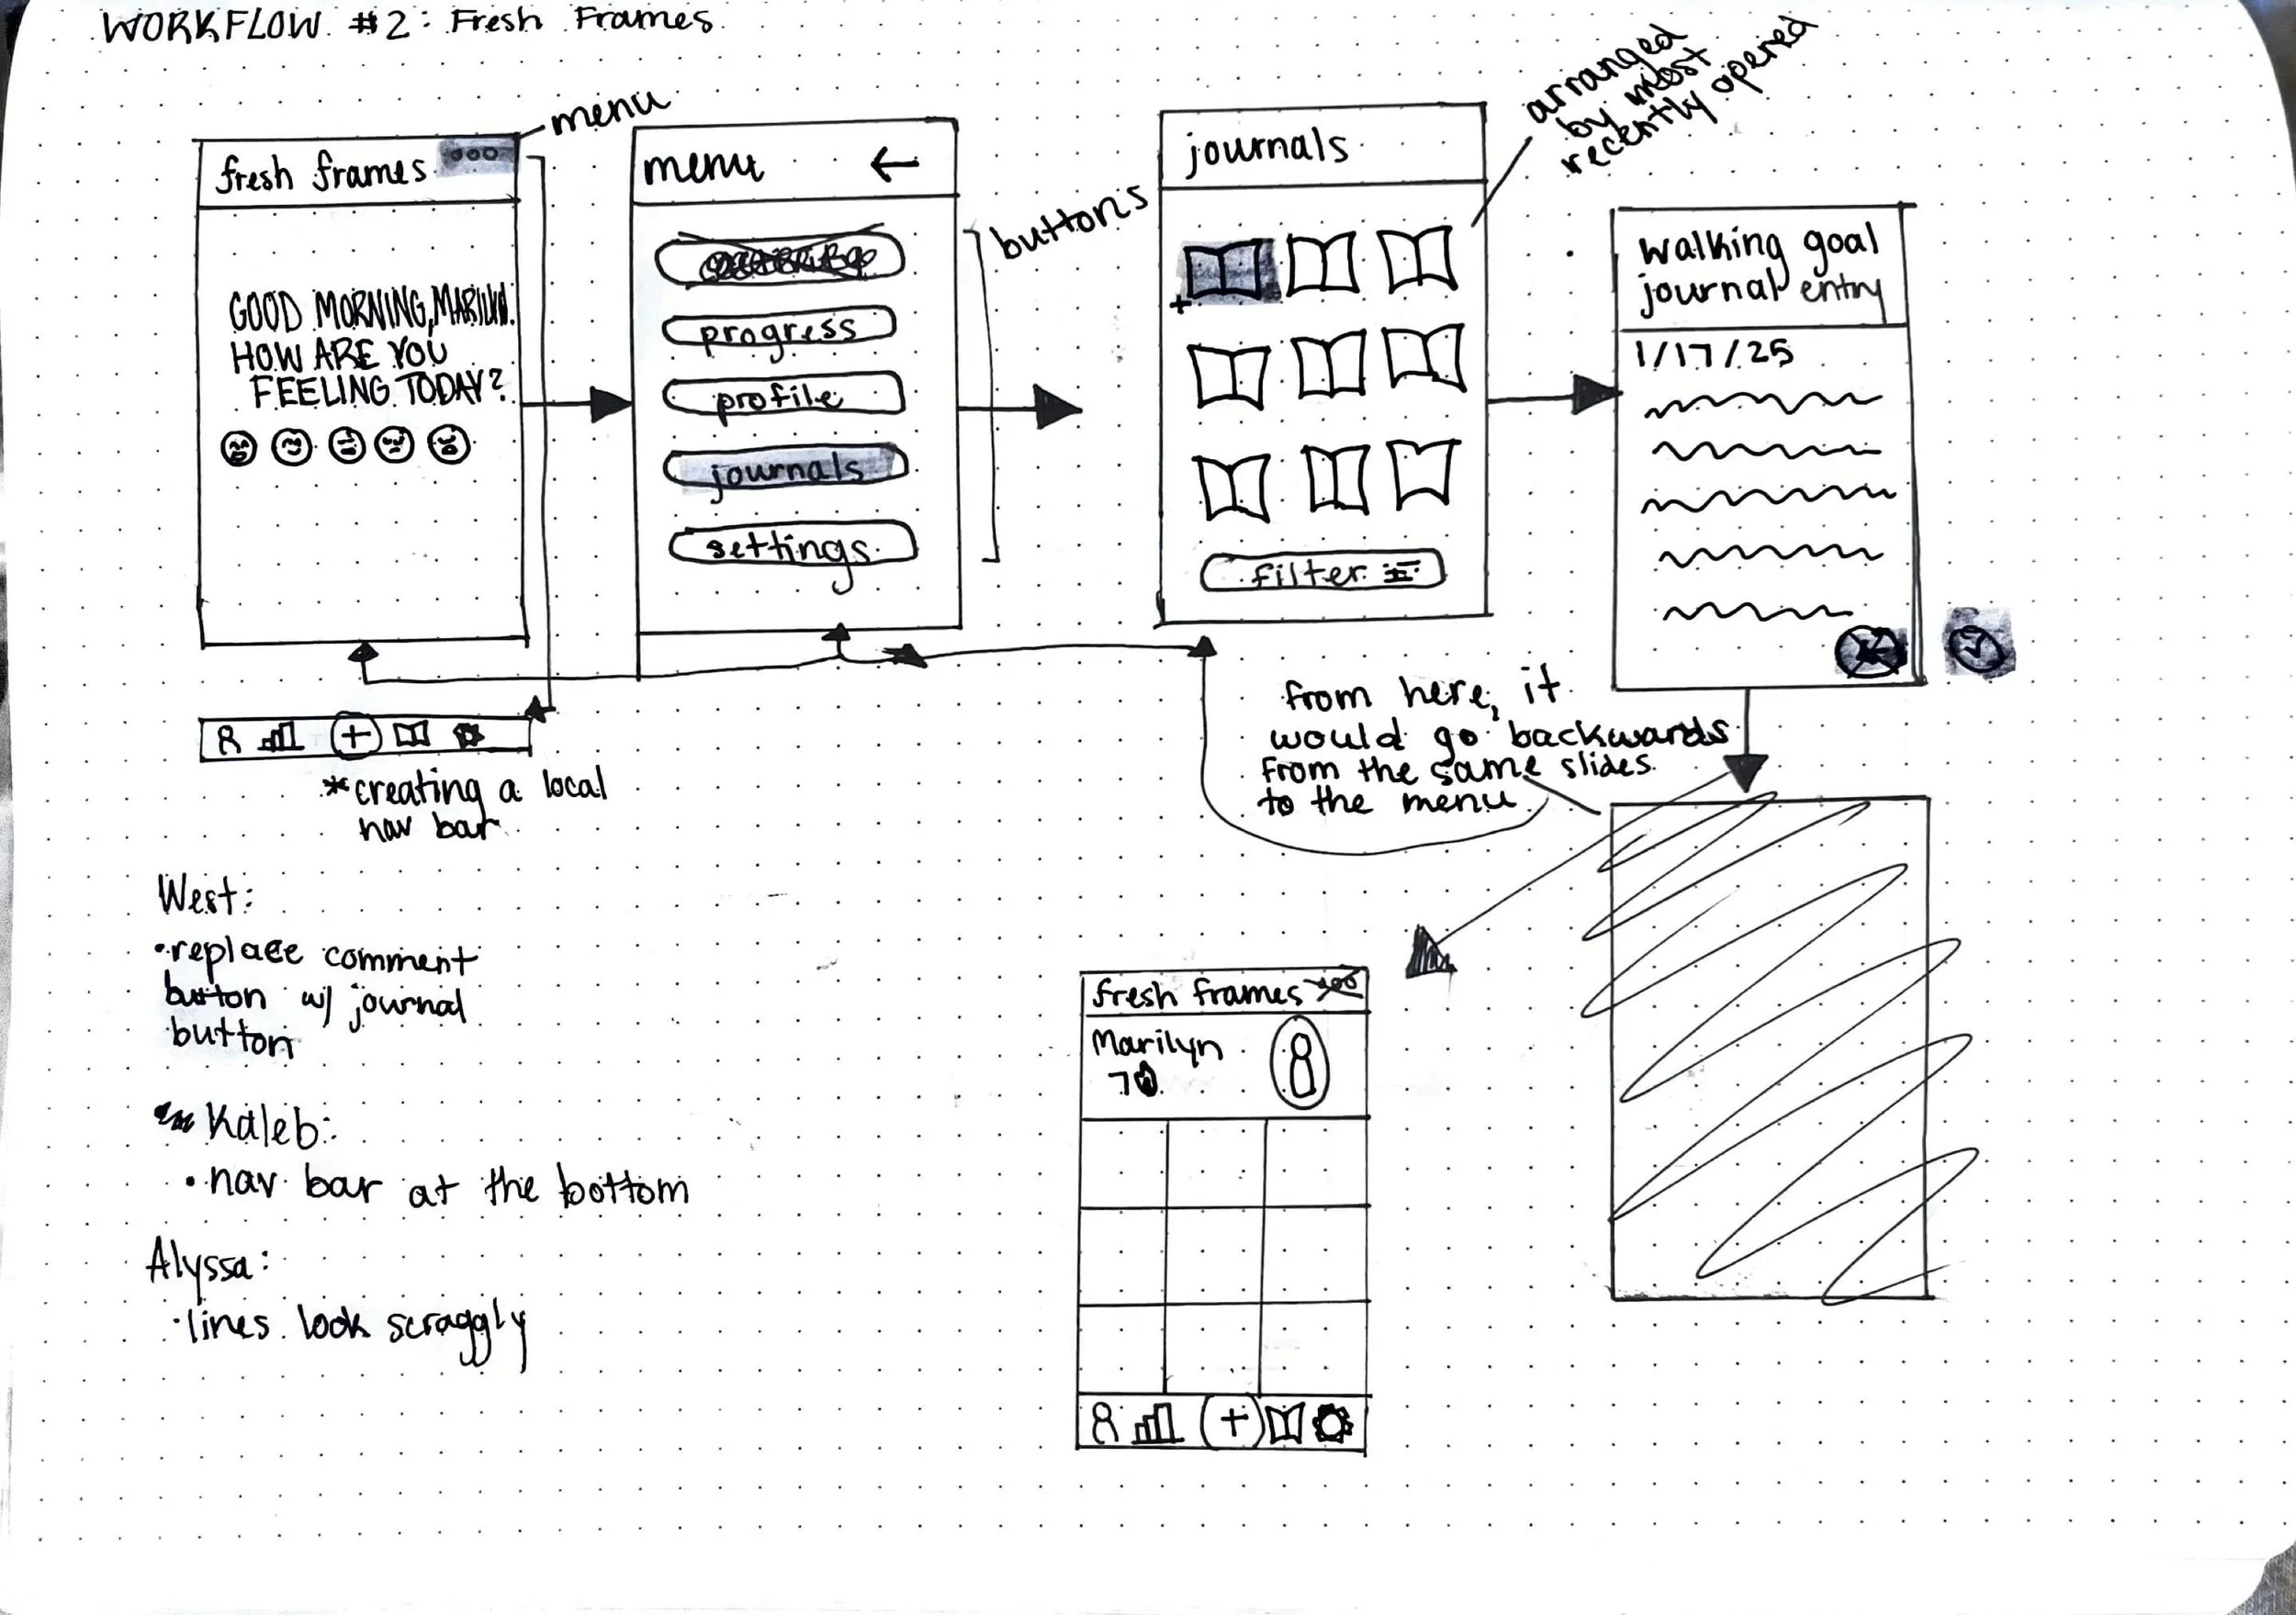 WORKFLOW #2: Fresh Frames
menu
fresh frames
GOOD MORNING, MARILYN.
HOW ARE YOU
FEELING TODAY?
*creating a local
nav bar
menu
progress
profile
journals
settings
buttons
journals
filter
arranged
by most
recently opened
walking goal
journal entry
1/17/25
from here, it
would go backwards
from the same slides
to the menu
fresh frames
Marilyn
7
West:
•replace comment
button w/ journal
button
Kaleb:
•nav bar at the bottom
Alyssa:
•lines look scraggly